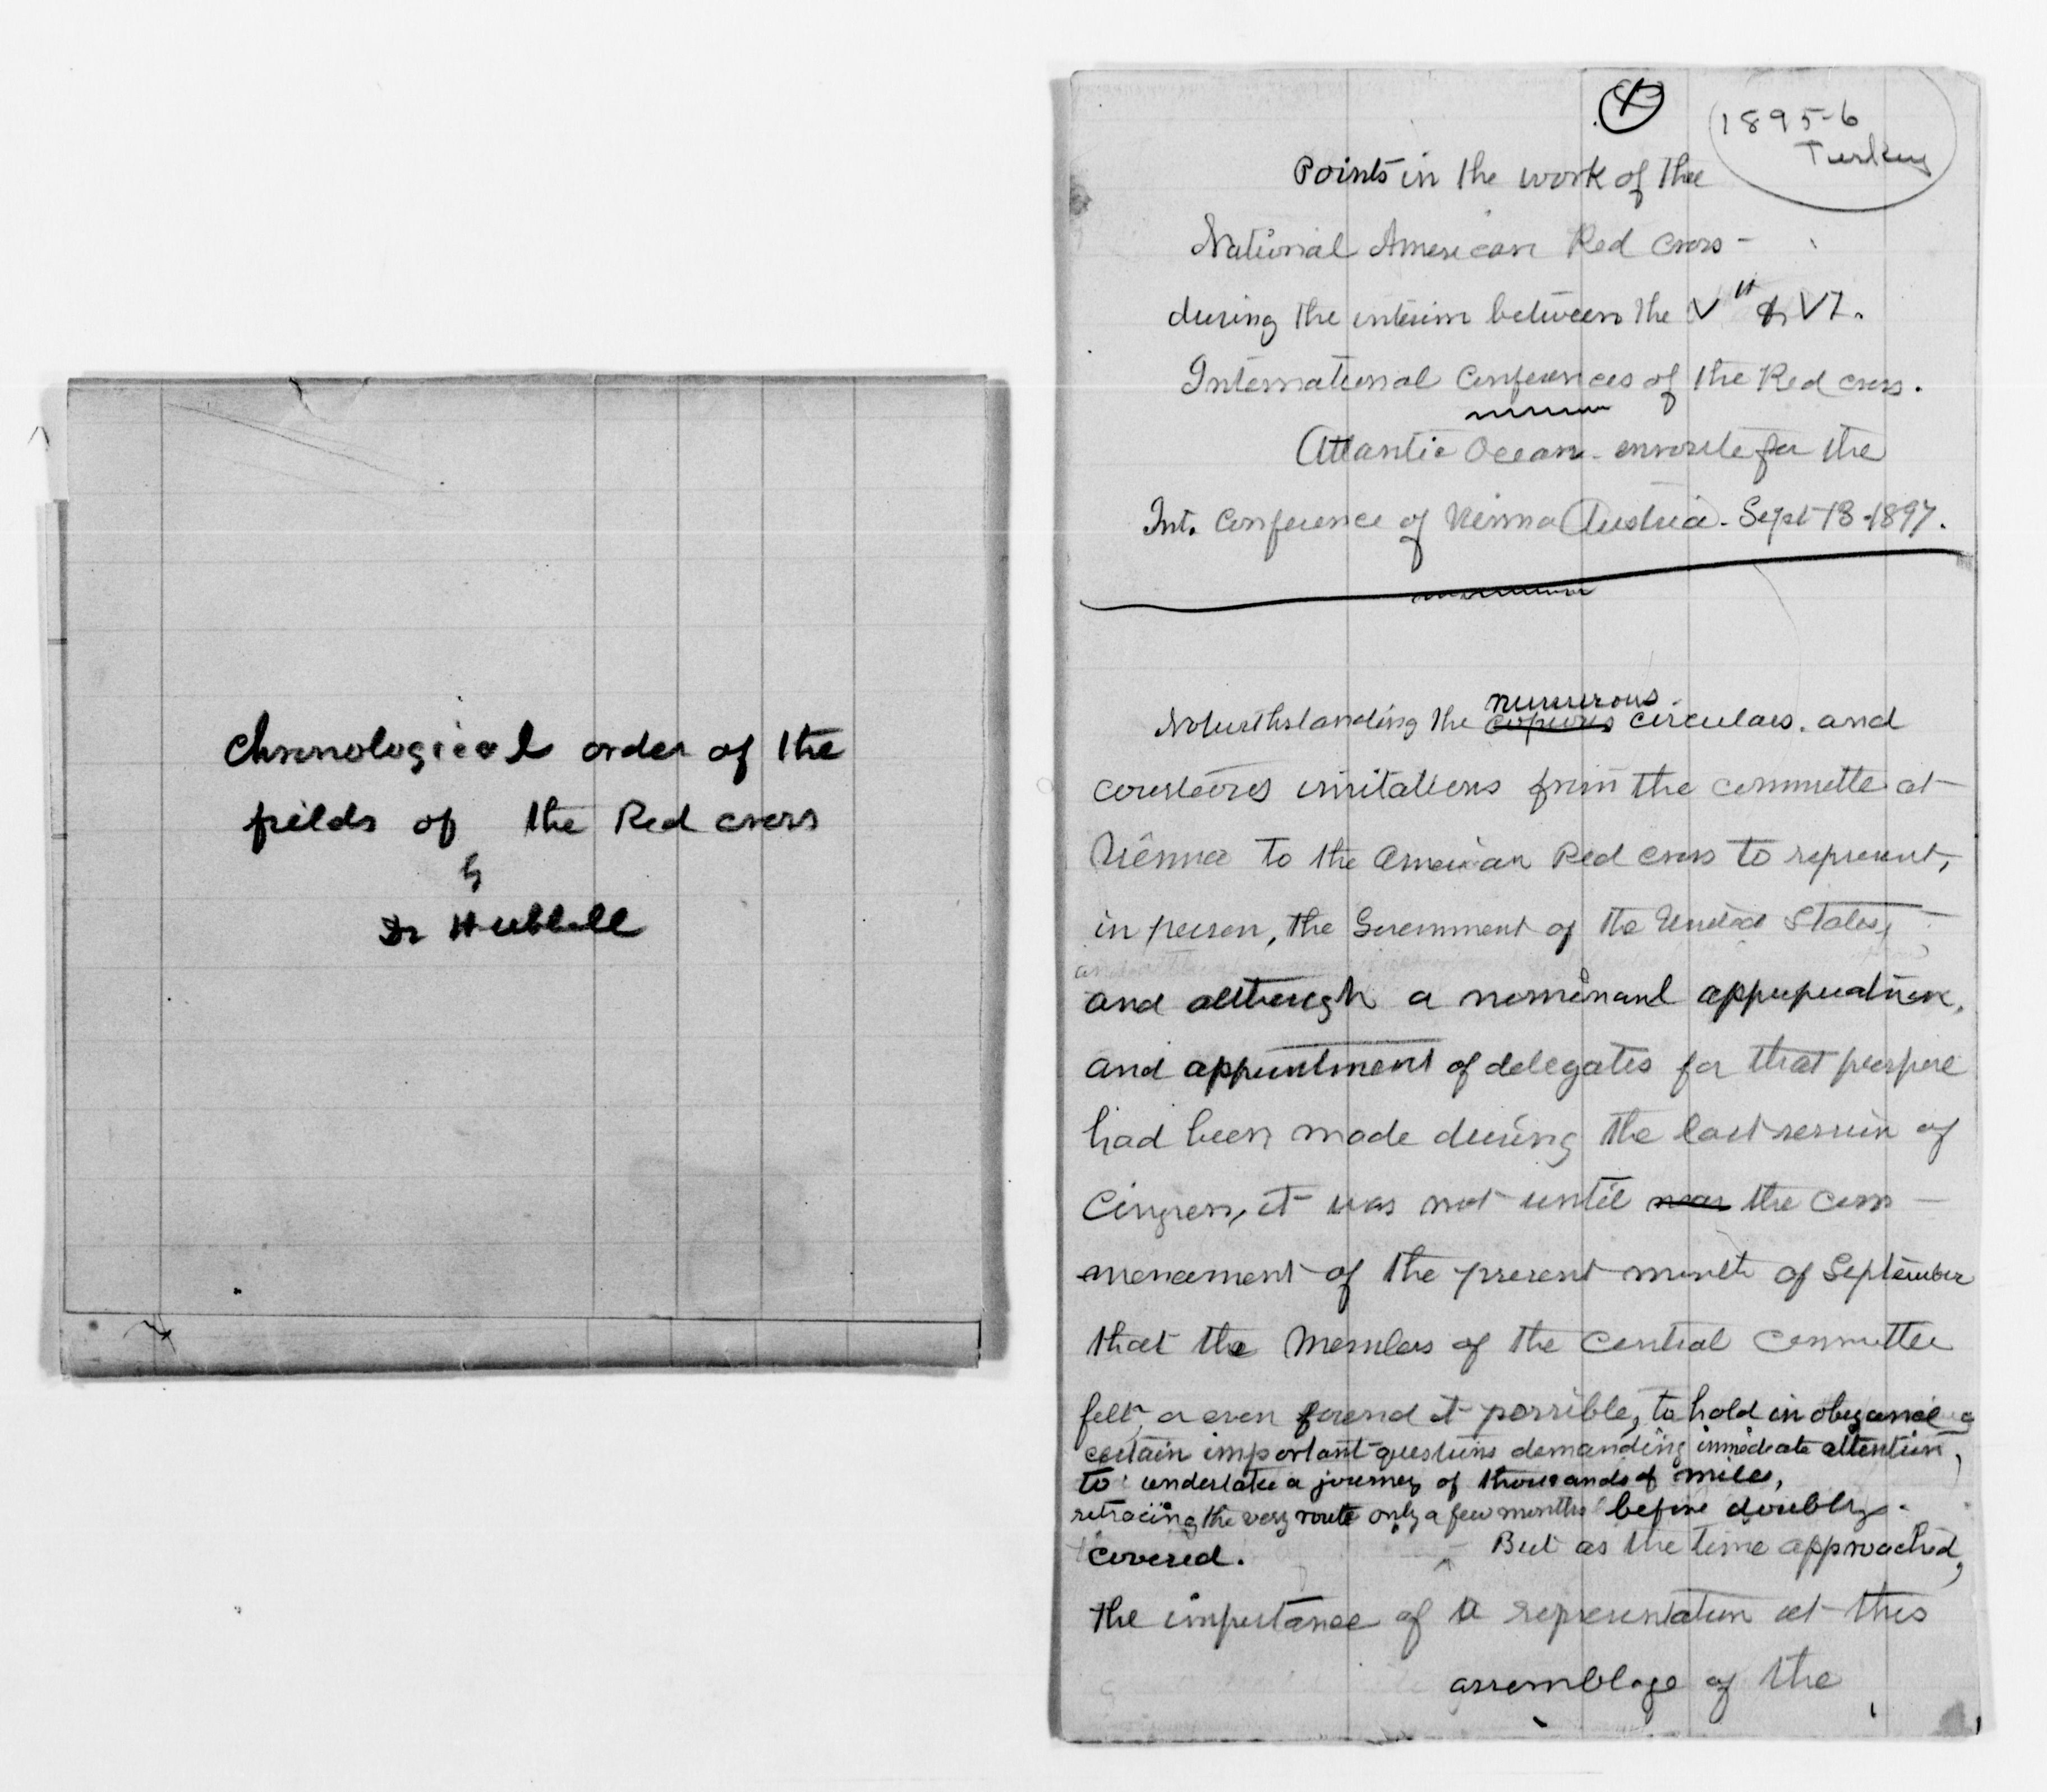 Chronological order of the
fields of the Red cross
by
Dr Hubbell
1895-6
Turkey
Points in the work of the
National American Red Cross -
during the interim between the Vth & VI.
International Conferences of the Red Cross.
Atlantic Ocean - enroute for the
Int. Conference of Vienna Austria - Sept 13 - 1897.
numerous
Notwithstanding the copious circulars, and
courteous invitations from the committe at
Vienna to the American Red Cross to represent,
in person, the Government of the United States,
and although a nominal appropriation,
and appointment of delegates for that purpose
had been made during the last session of
Congress, it was not until near the com -
mencement of the present month of September
that the Members of the Central Committee
felt, or even found it possible, to hold in obeyance
certain important questions demanding immediate attention,
to undertake a journey of thousands of miles,
retracing the very route only a few months before doubly
covered. But as the time approached,
the importance of a representation at this
assemblage of the